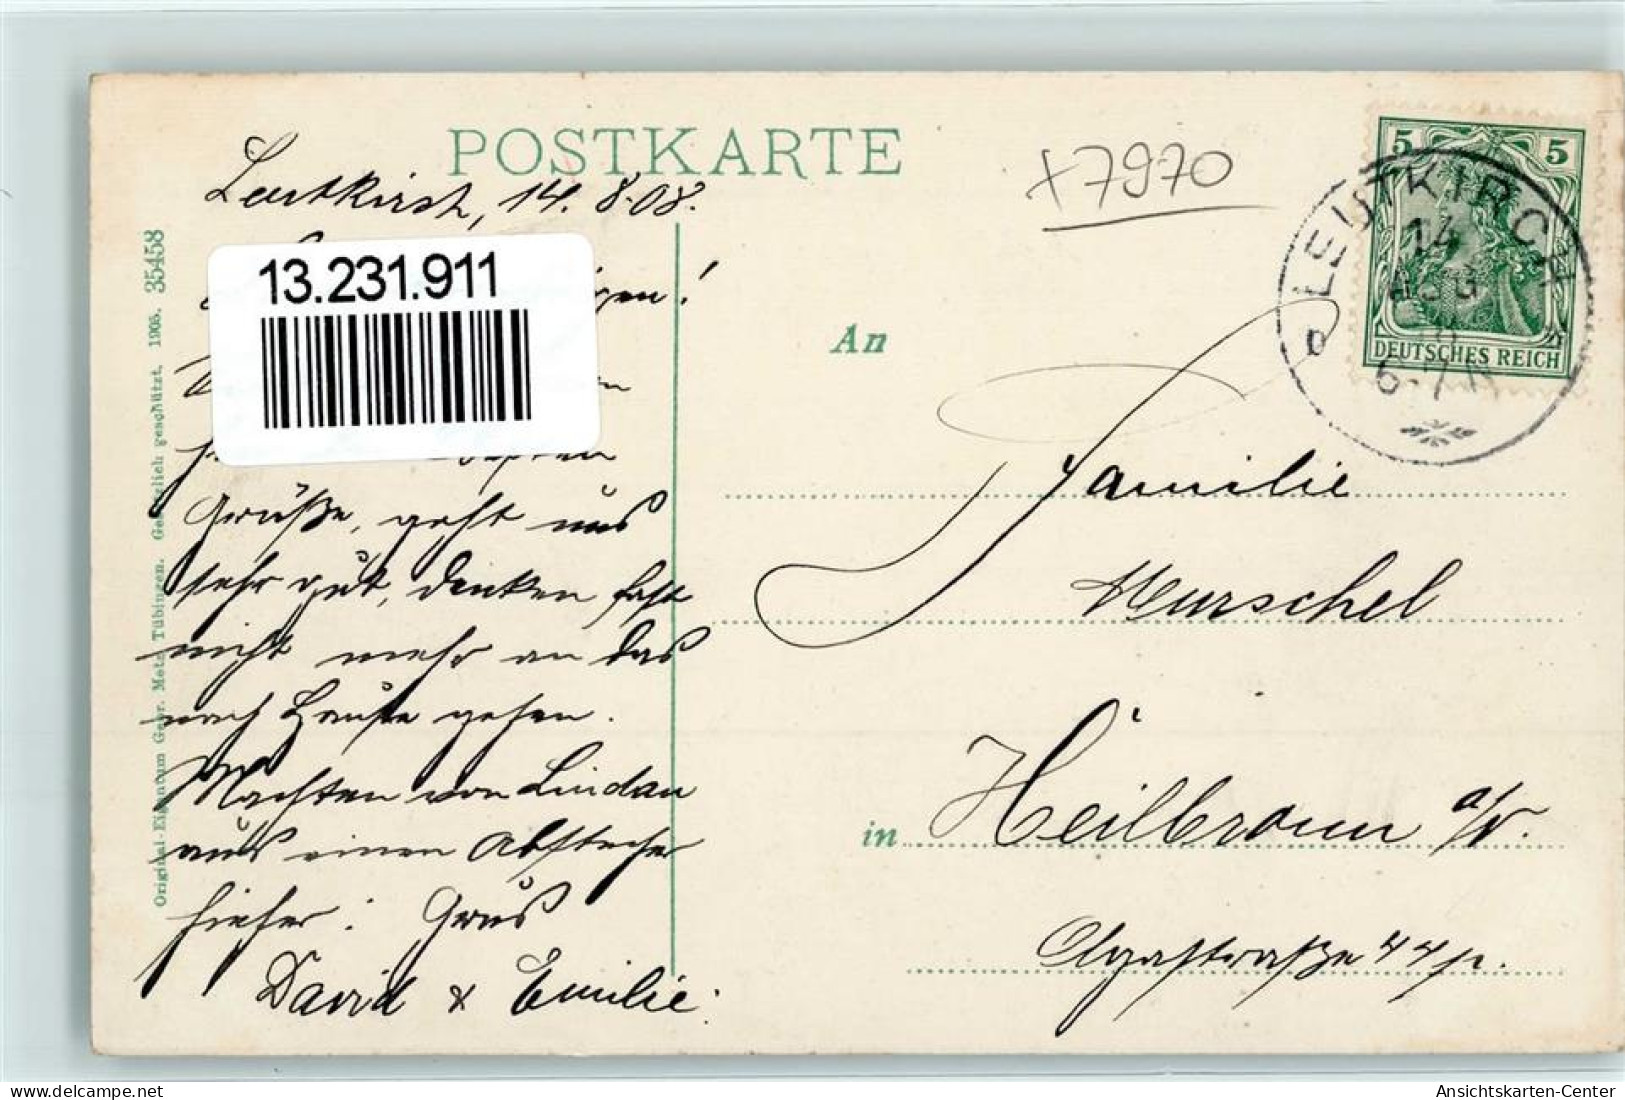 POSTKARTE
Leutkirch, 14. 8. 08.
13.231.911
Grüße, geht uns
sehr gut, denken fast
nicht mehr an das
nach Hause gehen.
Machten von Lindau
aus einen Abstecher
hieher. Gruß
David & Emilie.
Original-Eigentum Gebr. Metz Tübingen. Gesetzlich geschützt. 1905. 35458
x7970
5 5
DEUTSCHES REICH
LEUTKIRCH
14
AUG
6-7 N
An
Familie
Murschel
in Heilbronn a/N.
Olgastraße 44 p.
Ansichtskarten-Center